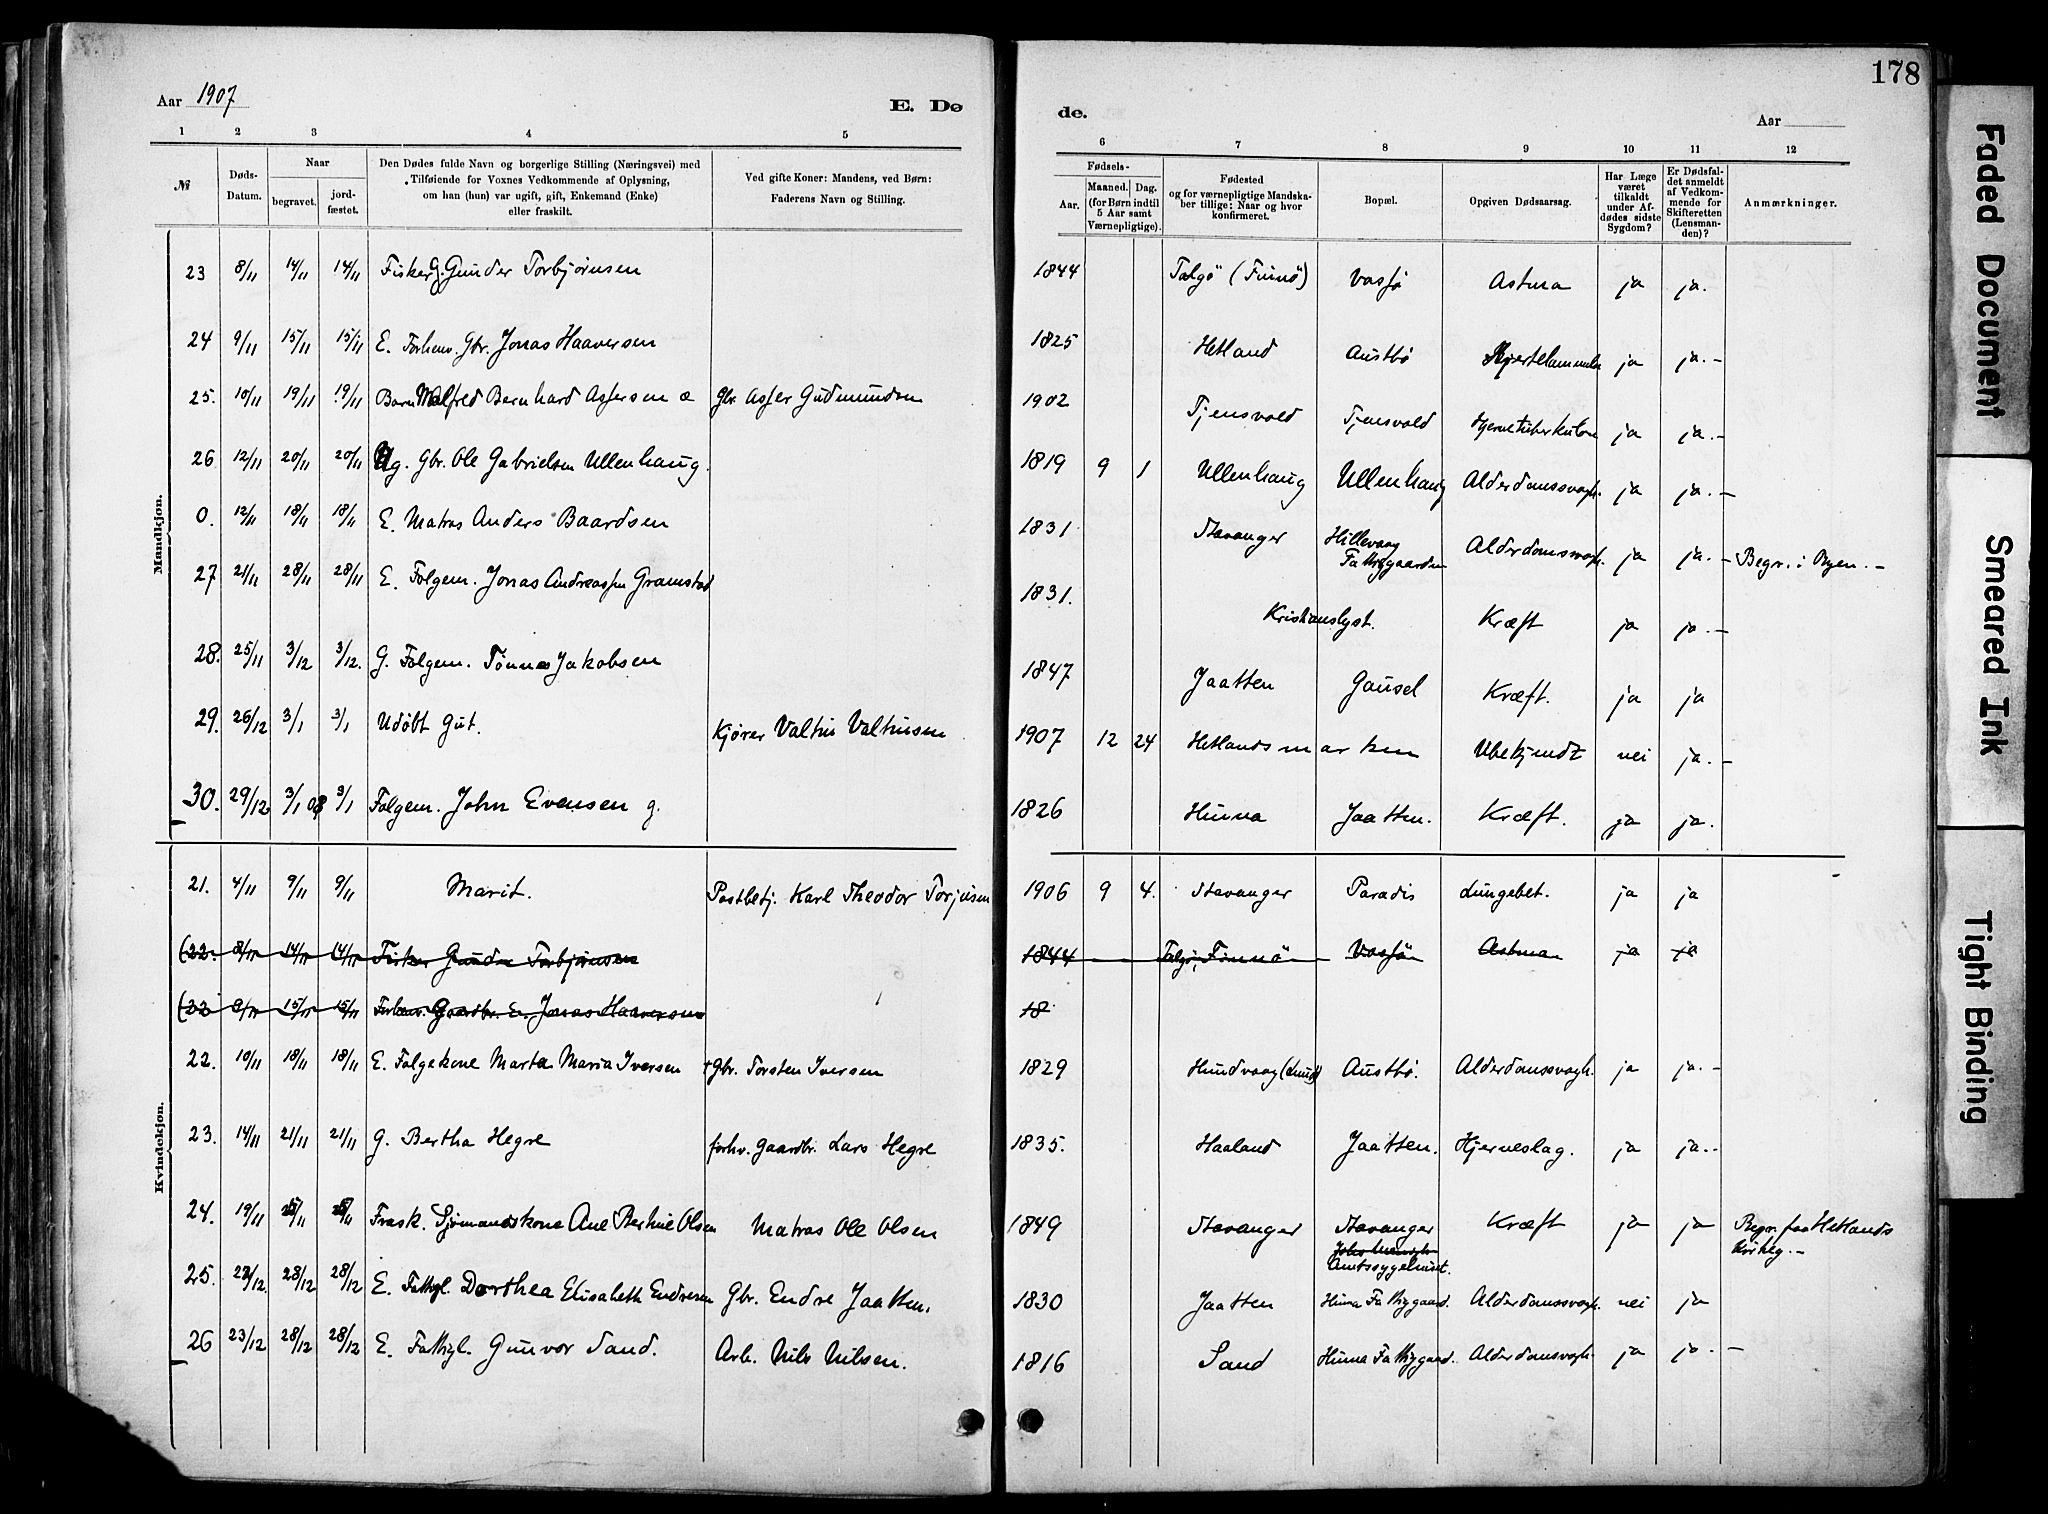 178
Aar 1907
E. Dø
de.
Aar
1 2 3 4 5 6 7 8 9 10 11 12
№
Døds-Datum.
Naar
begravet.
jord-fæstet.
Den Dødes fulde Navn og borgerlige Stilling (Næringsvei) med
Tilføiende for Voxnes Vedkommende af Oplysning,
om han (hun) var ugift, gift, Enkemand (Enke)
eller fraskilt.
Ved gifte Koner: Mandens, ved Børn:
Faderens Navn og Stilling.
Fødsels-
Aar.
Maaned. Dag.
(for Børn indtil
5 Aar samt
Værnepligtige).
Fødested
og for værnepligtige Mandska-
ber tillige: Naar og hvor
konfirmeret.
Bopæl.
Opgiven Dødsaarsag.
Har Læge
været
tilkaldt
under Af-
dødes sidste
Sygdom?
Er Dødsfal-
det anmeldt
af Vedkom-
mende for
Skifteretten
(Lensman-
den)?
Anmærkninger.
Mandkjøn.
23 8/11 14/11 14/11 Fisker G. Gunder Torbjørnsen 1844 Talgö (Finnö) Vasfö Astma ja ja.
24 9/11 15/11 15/11 E. Forhenv. Gbr. Jonas Haaversen 1825 Hetland Austbö Hjertelammelse ja ja. -
25. 10/11 19/11 19/11 Barn Malfred Bernhard Assersen æ Gbr. Asser Gudmundsen 1902 Tjensvold Tjensvold Hjernetuberkulose ja ja. -
26 12/11 20/11 20/11 Ug. Gbr. Ole Gabrielsen Ullenhaug. 1819 9 1 Ullenhaug Ullenhaug Alderdomssvagh. ja ja. -
0. 12/11 18/11 18/11 E. Matros Anders Baardsen 1831 Stavanger Hillevaag Fattiggaarden Alderdomssvagh. ja ja. - Begr. i Byen. -
27 21/11 28/11 28/11 E. Folgem. Jonas Andreassen Gramstad 1831. Kristianslyst. Kræft ja ja. -
28. 25/11 3/12 3/12. G. Folgem. Tönnes Jakobsen 1847 Jaatten Gausel Kræft. ja ja
29. 26/12 3/1 3/1 Udöbt Gut. Kjører Valtin Valtinsen 1907 12 24 Hetlandsmarken Ubekjendt nei ja. -
30. 29/12 3/1 08 3/1 Folgem. John Evensen g. 1826 Hinna Jaatten. Kræft. ja ja.
Kvindekjøn.
21. 4/11 9/11 9/11 Marit. Postbetj. Karl Theodor Torjusen 1906 9 4. Stavanger Paradis Lungebet. ja ja
(22. 8/11 14/11 14/11 Fisker Gunder Torbjørnsen 1844 Talgö, Finnö Vasfö Astma ja ja
(22 9/11 15/11 15/11 Forhenv. Gaardbr. E. Jonas Haaversen 18
22. 10/11 18/11 18/11 E. Folgekone Marta Maria Iversen + Gbr. Torsten Iversen 1829 Hundvaag (Lund) Austbö. Alderdomssvagh. ja ja. -
23. 14/11 21/11 21/11 G. Bertha Hegre forhv. Gaardbr. Lars Hegre 1835. Haaland Jaatten. Hjerneslag. ja ja. -
24. 19/11 Frask. Sjømandskone Ane Bertine Olsen Matros Ole Olsen 1849 Stavanger Stavanger Amtssygehuset. Kræft ja ja Begr. paa Hetlands Kirkeg. -
25. 28/12 28/12 E. Fattigl. Dorthea Elisabeth Endresen Gbr. Endre Jaatten. 1830 Jaatten Hinna Fattiggaard. Alderdomssvagh. nei ja
26 23/12 28/12 28/12 E. Fattigl. Gunvor Sand. Arb. Nils Nilsen. 1816 Sand Hinna Fattiggaard. Alderdomsvagh. ja ja. -
Faded Document
Smeared Ink
Tight Binding